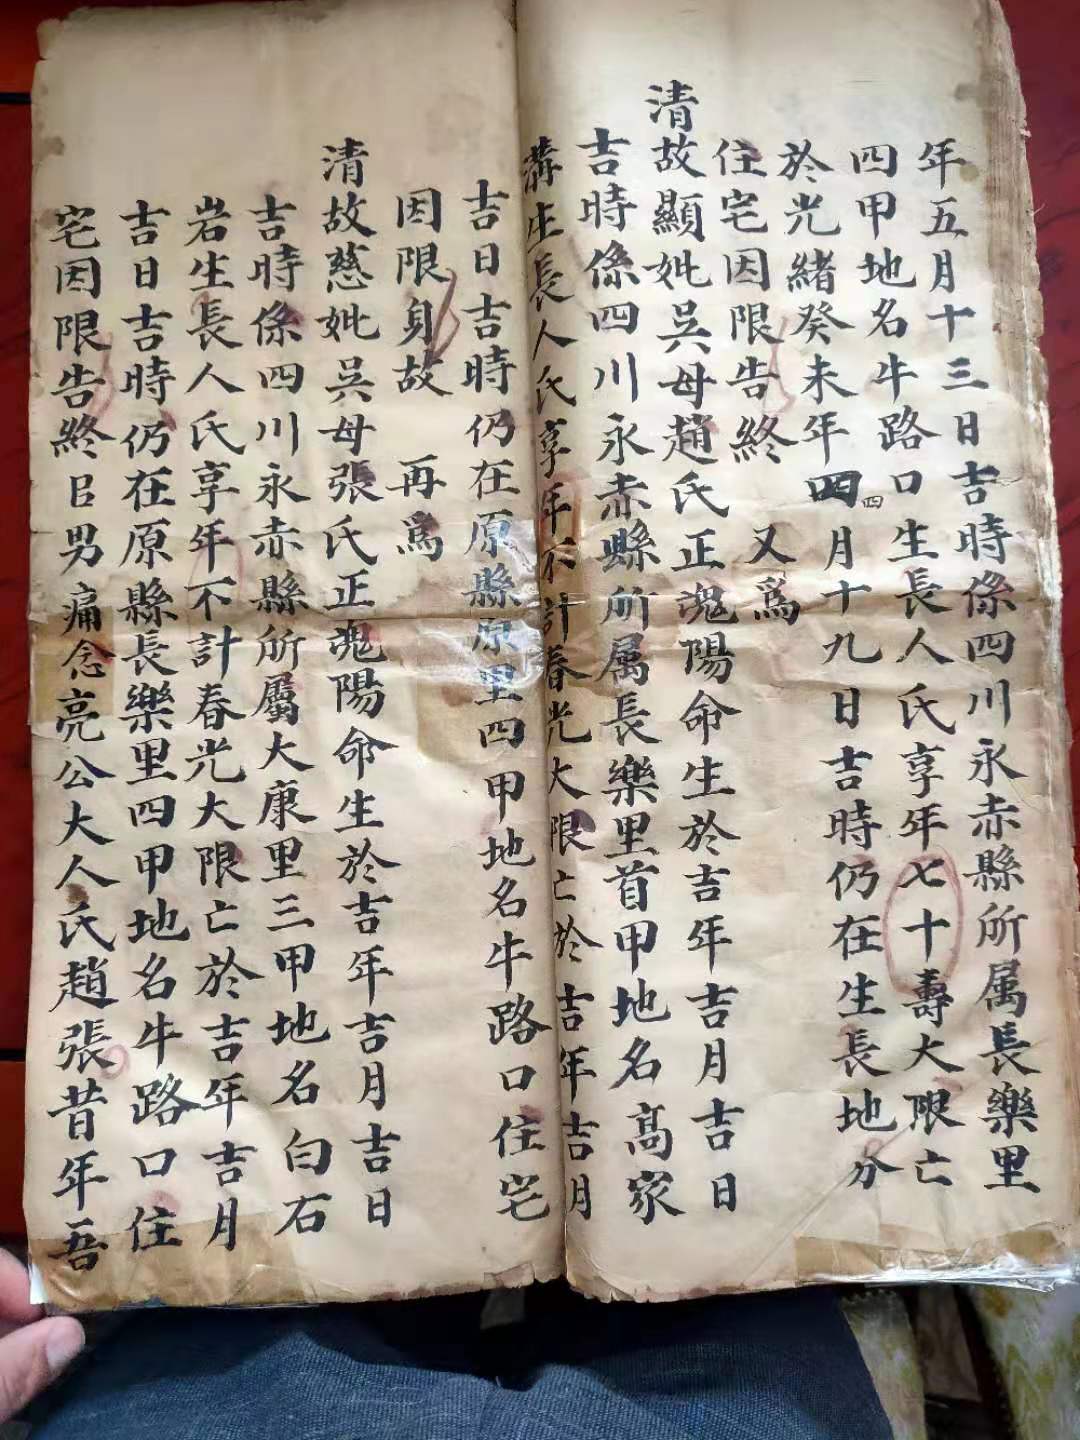 年五月十三日吉時係四川永赤縣所属長樂里
四甲地名牛路口生長人氏享年七十壽大限亡
於光緒癸未年四四月十九日吉時仍在生長地分
住宅因限告終 又為
清故顯妣吳母趙氏正魂陽命生於吉年吉月吉日
吉時係四川永赤縣所属長樂里首甲地名高家
溝生長人氏享年不計春光大限亡於吉年吉月
吉日吉時仍在原縣原里四甲地名牛路口住宅
因限身故 再為
清故慈妣吳母張氏正魂陽命生於吉年吉月吉日
吉時係四川永赤縣所屬大康里三甲地名白石
岩生長人氏享年不計春光大限亡於吉年吉月
吉日吉時仍在原縣長樂里四甲地名牛路口住
宅因限告終㠯男痛念亮公大人氏趙張昔年吾